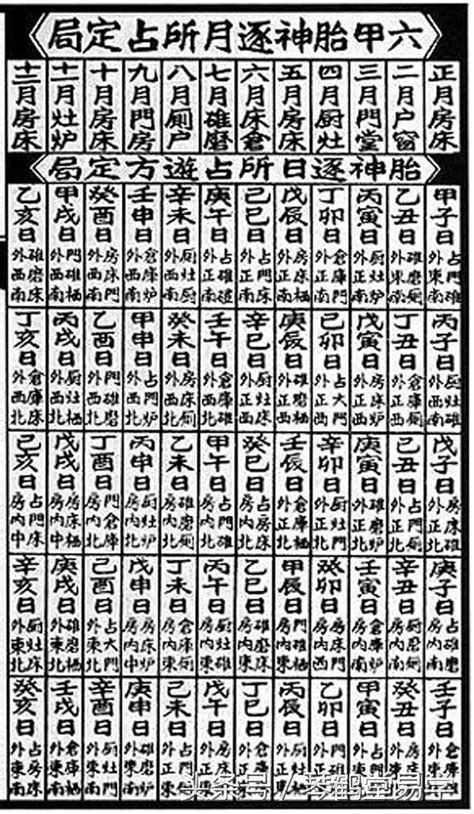 六甲胎神逐月所占定局
正月房床
二月户窗
三月門堂
四月厨灶
五月房床
六月床倉
七月碓磨
八月厕户
九月門房
十月房床
十一月灶炉
十二月房床
胎神逐日所占遊方定局
甲子日 占門碓 外東南
乙丑日 碓磨厕 外東南
丙寅日 厨灶炉 外正南
丁卯日 倉庫門 外正南
戊辰日 房床栖 外正南
己巳日 占門床 外正南
庚午日 占碓 外正南
辛未日 厨灶厕 外西南
壬申日 倉庫炉 外西南
癸酉日 房床門 外西南
甲戌日 門碓栖 外西南
乙亥日 碓磨床 外西南
丙子日 厨灶碓 外西南
丁丑日 倉庫厕 外正西
戊寅日 房床炉 外正西
己卯日 占大門 外正西
庚辰日 碓磨栖 外正西
辛巳日 厨灶床 外正西
壬午日 倉庫碓 外西北
癸未日 房床厕 外西北
甲申日 占門炉 外西北
乙酉日 碓磨門 外西北
丙戌日 厨灶栖 外西北
丁亥日 倉庫床 外西北
戊子日 房床碓 外正北
己丑日 占門厕 外正北
庚寅日 碓磨炉 外正北
辛卯日 厨灶門 外正北
壬辰日 倉庫栖 外正北
癸巳日 占房床 房内北
甲午日 占門碓 房内北
乙未日 碓磨厕 房内北
丙申日 厨灶炉 房内北
丁酉日 倉庫門 房内北
戊戌日 房床栖 房内中
己亥日 占門床 房内中
庚子日 占碓磨 房内南
辛丑日 厨灶厕 房内南
壬寅日 倉庫炉 房内南
癸卯日 房床門 房内西
甲辰日 門栖 房内東
乙巳日 碓磨床 房内東
丙午日 厨灶碓 房内東
丁未日 倉庫厕 房内東
戊申日 房床炉 房内中
己酉日 占大門 外東北
庚戌日 碓磨栖 外東北
辛亥日 厨灶床 外東北
壬子日 倉庫 外東
癸丑日 房床 外東
甲寅日 占門 外東
乙卯日 碓磨 外正
丙辰日 厨灶 外正
丁巳日 倉庫 外正
戊午日 房床 外正
己未日 占門 外正
庚申日 碓磨炉 外東南
辛酉日 厨灶門 外東南
壬戌日 倉庫栖 外東南
癸亥日 占房床 外東南
头条号 / 琴鹤堂易学